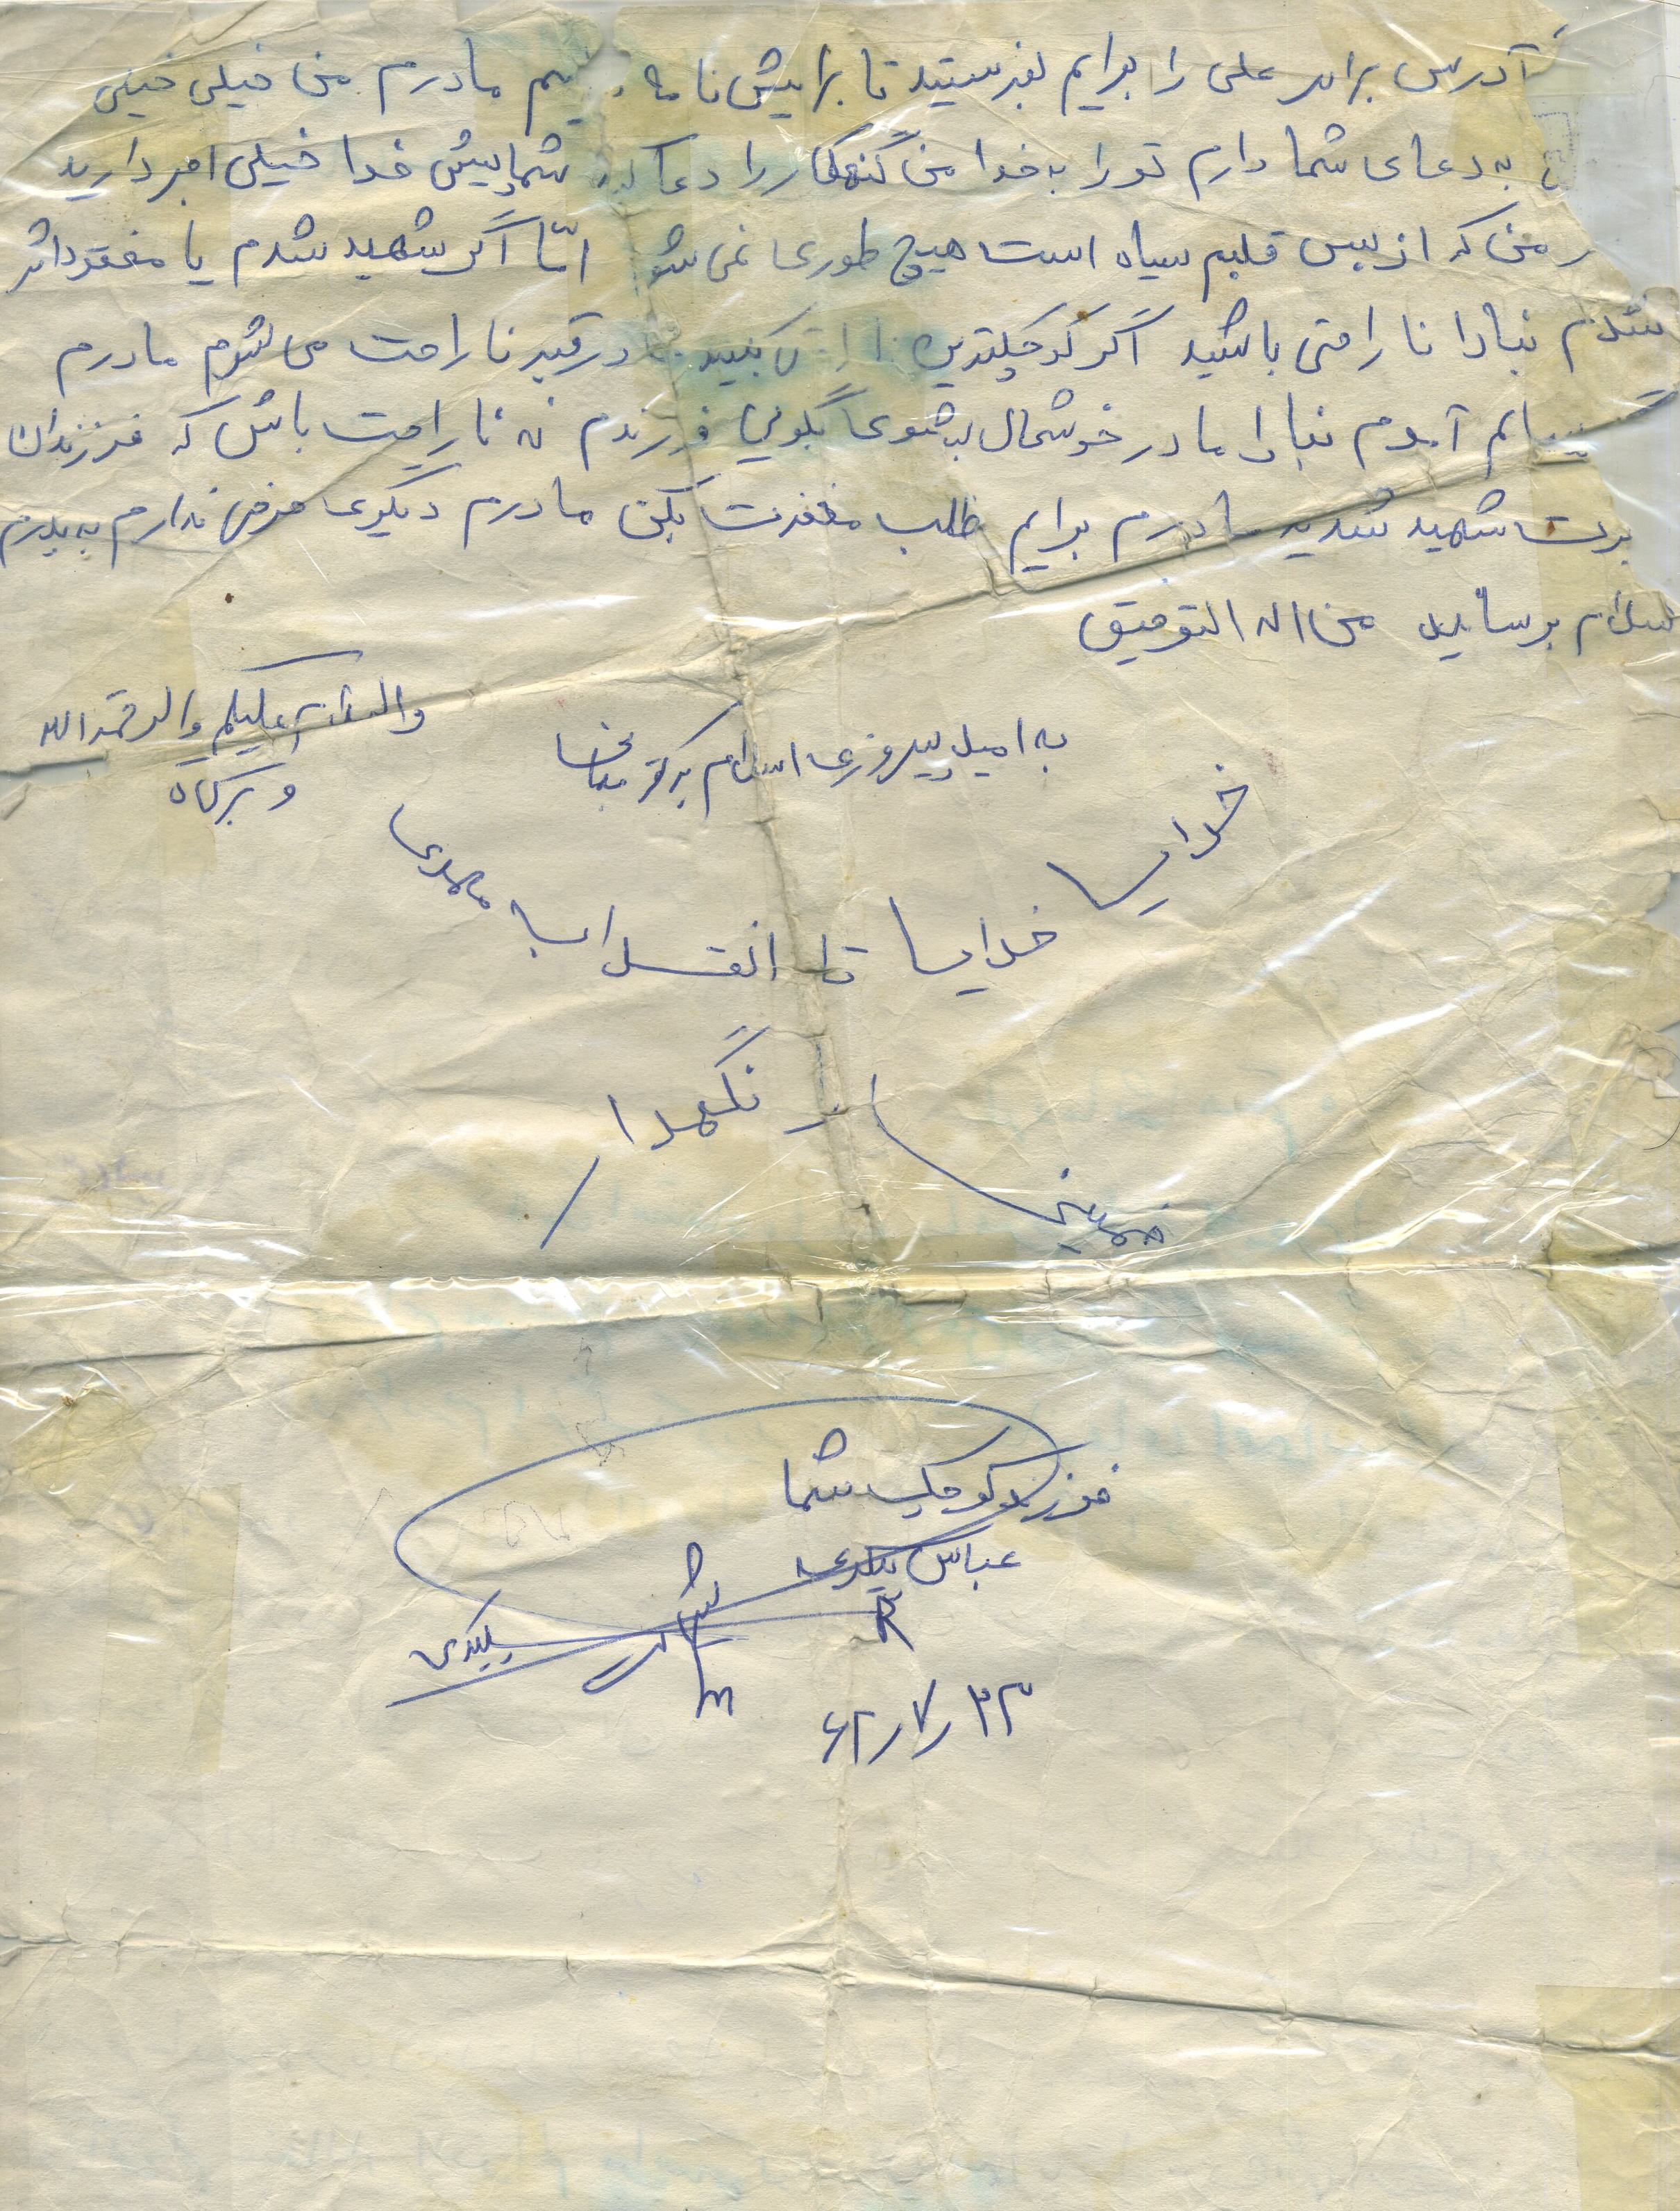 آدرس برادر علی را برایم بفرستید تا برایش نامه مادرم من خیلی خیلی
به دعای شما دارم تو را به خدا من گنهکار را دعا کنید شما پیش خدا خیلی اجر دارید
من که از بس قلبم سیاه است هیچ طوری نمی شو امّا اگر شهید شدم یا مفقود اثر
شدم نبادا ناراحتی باشید اگر کوچکترین کنید در قبر ناراحت می شوم مادرم
سالم آمدم نبادا مادر خوشحال بشوی بگویی فرزندم نه ناراحت باش که فرزندان
شهید شدید مادرم برایم طلب مغفرت بکن مادرم دیگری عرضی ندارم به پدرم
سلام برسانید من اله التوفیق
والسلام علیکم والرحمة الله
و برکاه
به امید پیروزی اسلام بر کفر
خدایا
خدایا تا انقلاب مهدی
خمینی را نگهدار
فرزند کوچک شما
عباس بیگدی
R
۶۲/۷/۲۳